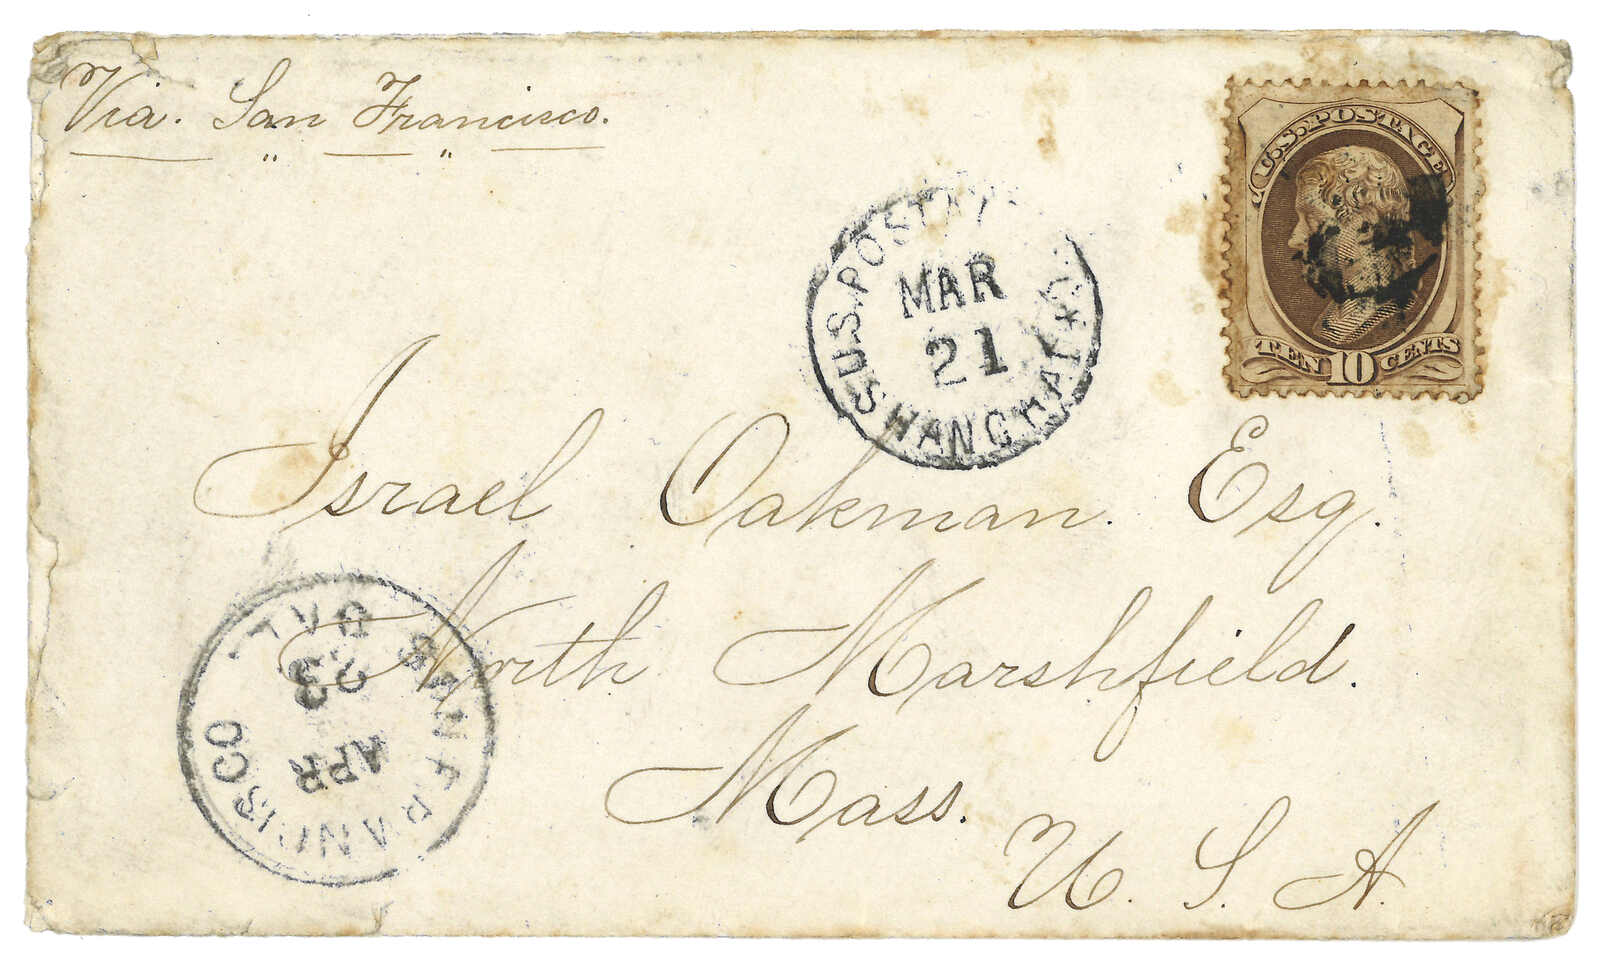 Via. San Francisco.
U.S. POSTAGE
TEN 10 CENTS
U.S. POSTAL
MAR
21
SHANGHAI
Israel Oakman. Esq.
North Marshfield.
Mass.
U. S. A.
SAN FRANCISCO
CAL.
APR
23